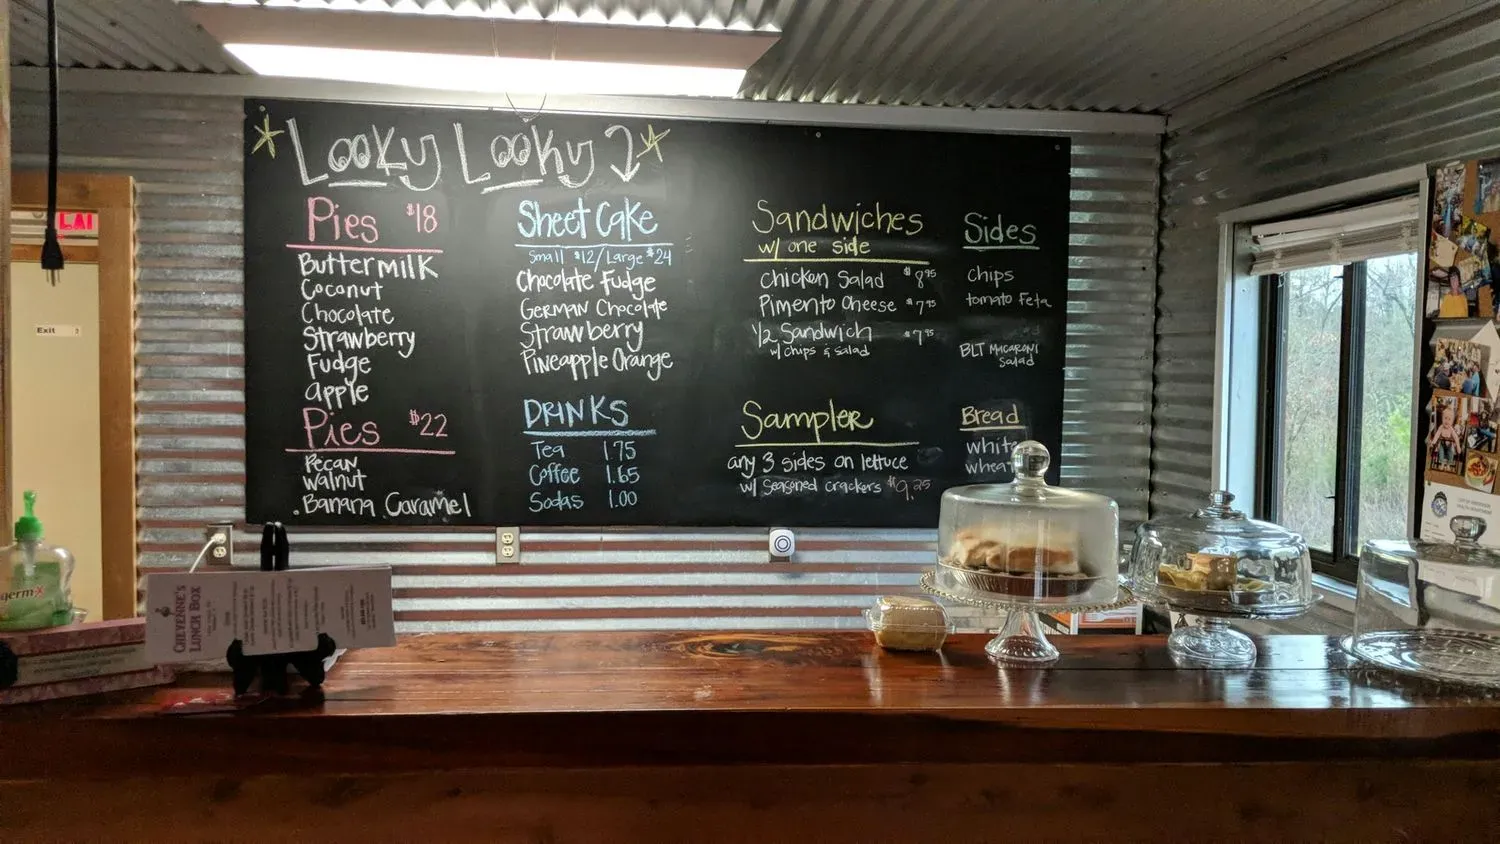 Looky Looky
Pies $18
Buttermilk
Coconut
Chocolate
Strawberry
Fudge
apple
Pies $22
Pecan
walnut
Banana Caramel
Sheet Cake
Small $12/Large $24
Chocolate Fudge
German Chocolate
Strawberry
Pineapple Orange
DRINKS
Tea 1.75
Coffee 1.65
Sodas 1.00
Sandwiches
w/ one side
Chicken Salad $8.95
Pimento Cheese $7.95
1/2 Sandwich $7.95
w/ chips & salad
Sampler
any 3 sides on lettuce
w/ Seasoned crackers $9.25
Sides
chips
tomato Feta
BLT Macaroni
Salad
Bread
white
Exit
germ-x
CHEYENNE'S
LUNCH BOX